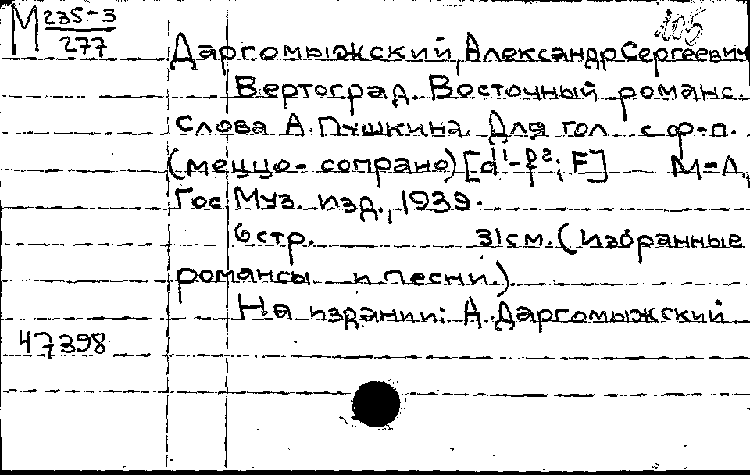 М 235-3
277
105
Даргомыжский, Александр Сергеевич
Вертоград. Восточный романс.
Слова А. Пушкина. Для гол. с ф-п.
(меццо-сопрано) [d¹-f²; F] М-Л,
Гос. Муз. изд., 1939.
6 стр. 31 см. (Избранные
романсы и песни.)
На издании: А. Даргомыжский
47398